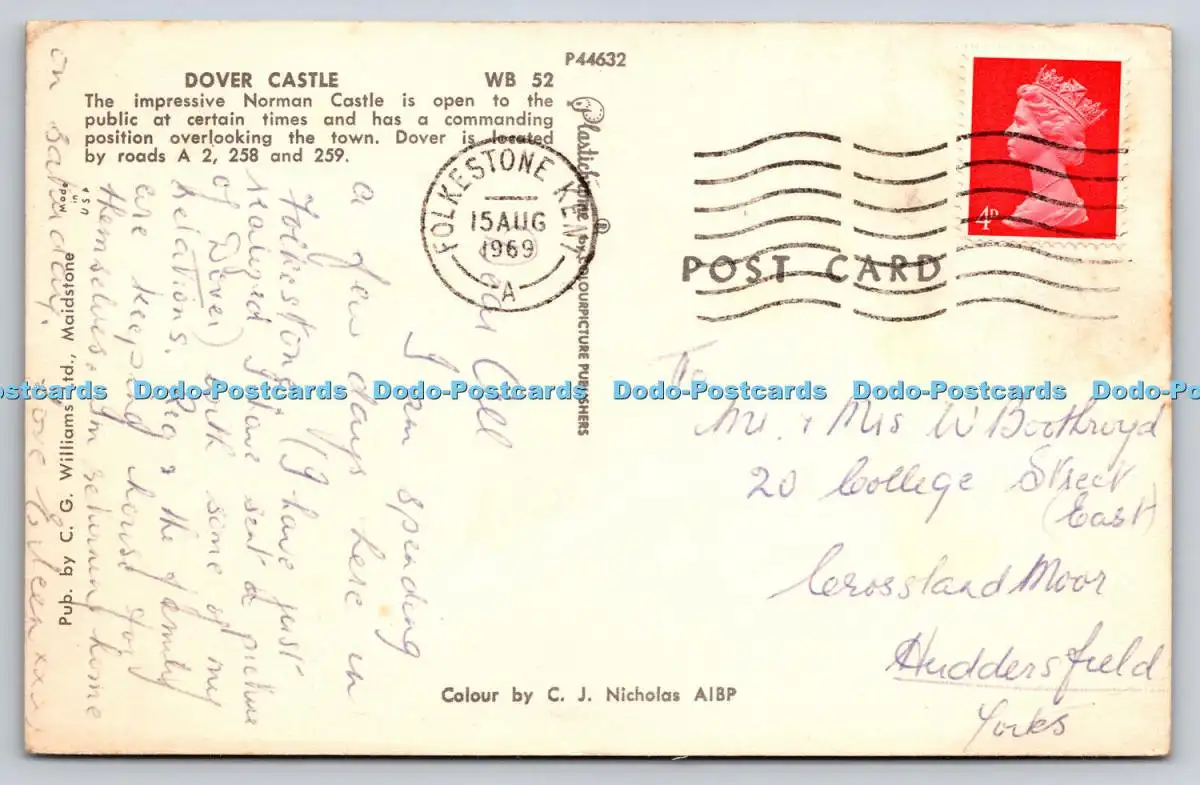 P44632
DOVER CASTLE WB 52
The impressive Norman Castle is open to the
public at certain times and has a commanding
position overlooking the town. Dover is located
by roads A 2, 258 and 259.
Made
in
USA
Pub. by C. G. Williams Ltd., Maidstone
Plastichrome ® by COLOURPICTURE PUBLISHERS
Colour by C. J. Nicholas AIBP
POST CARD
FOLKESTONE KENT
15 AUG
1969
A
4D
All
I am spending
a few days here in
Folkestone, (I have just
realised I have sent a picture
of Dover) with some of my
relations. Reg & the family
are keeping house for
themselves. I'm returning home
on Saturday.
Love Eileen xxx
To
Mr. & Mrs W Boothroyd
20 College Street
(East)
Crossland Moor
Huddersfield
Yorks
Dodo-Postcards Dodo-Postcards Dodo-Postcards Dodo-Postcards Dodo-Postcards Dodo-Postcards